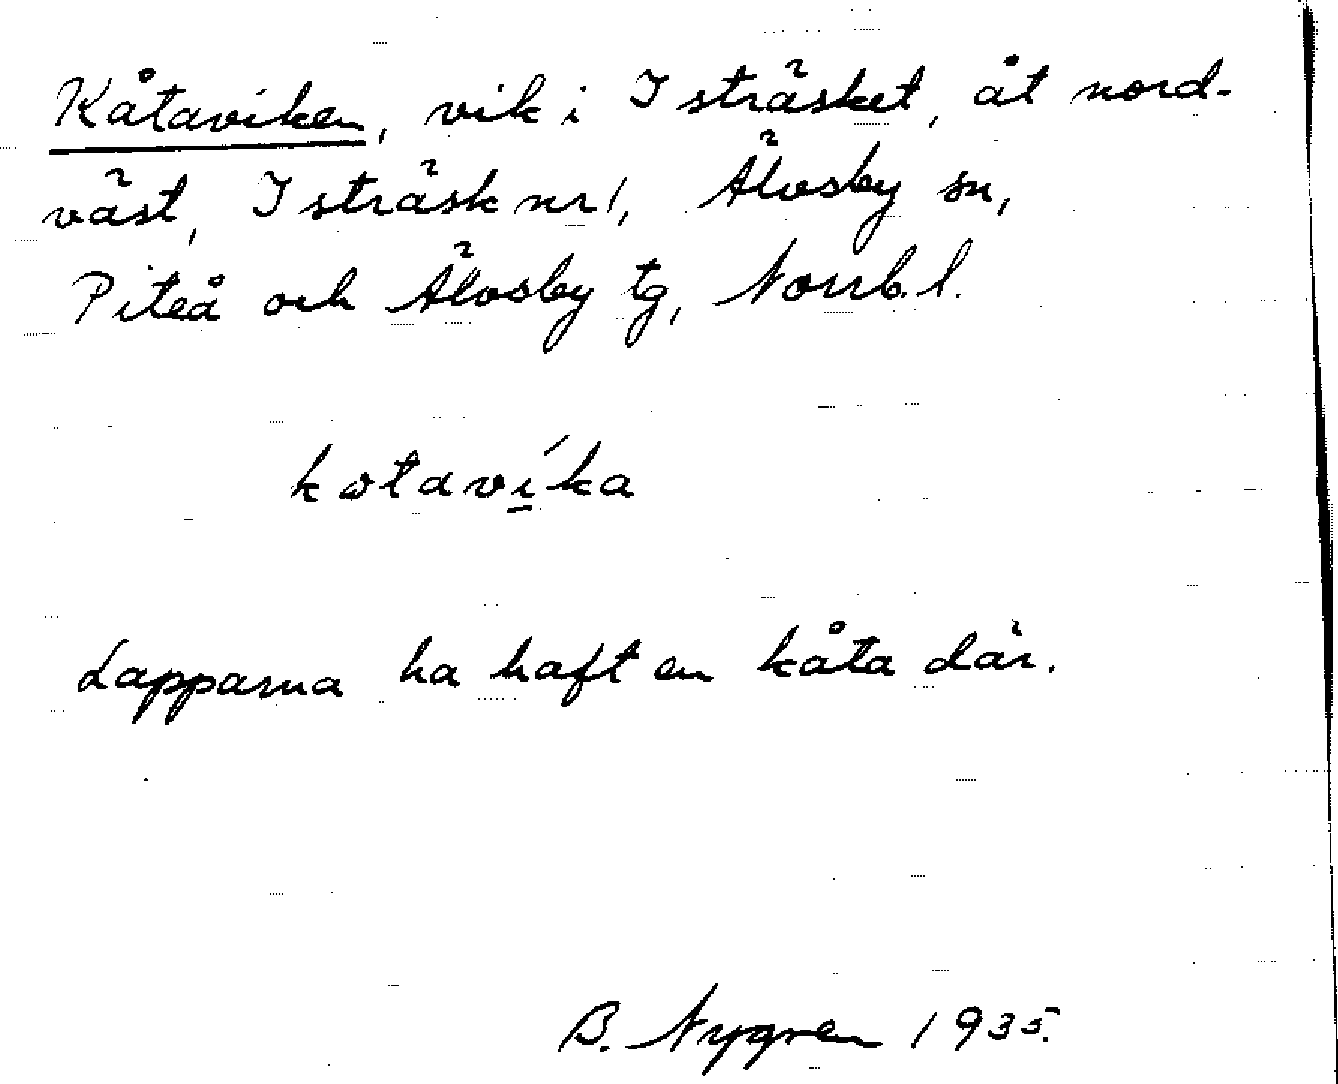 Kåtaviken, vik i Isträsket, åt nord-
väst, Isträsk nr 1, Älvsby sn,
Piteå och Älvsby tg, Norrb. l.
kotaví̱ka
Lapparna ha haft en kåta där.
B. Nygren 1935.